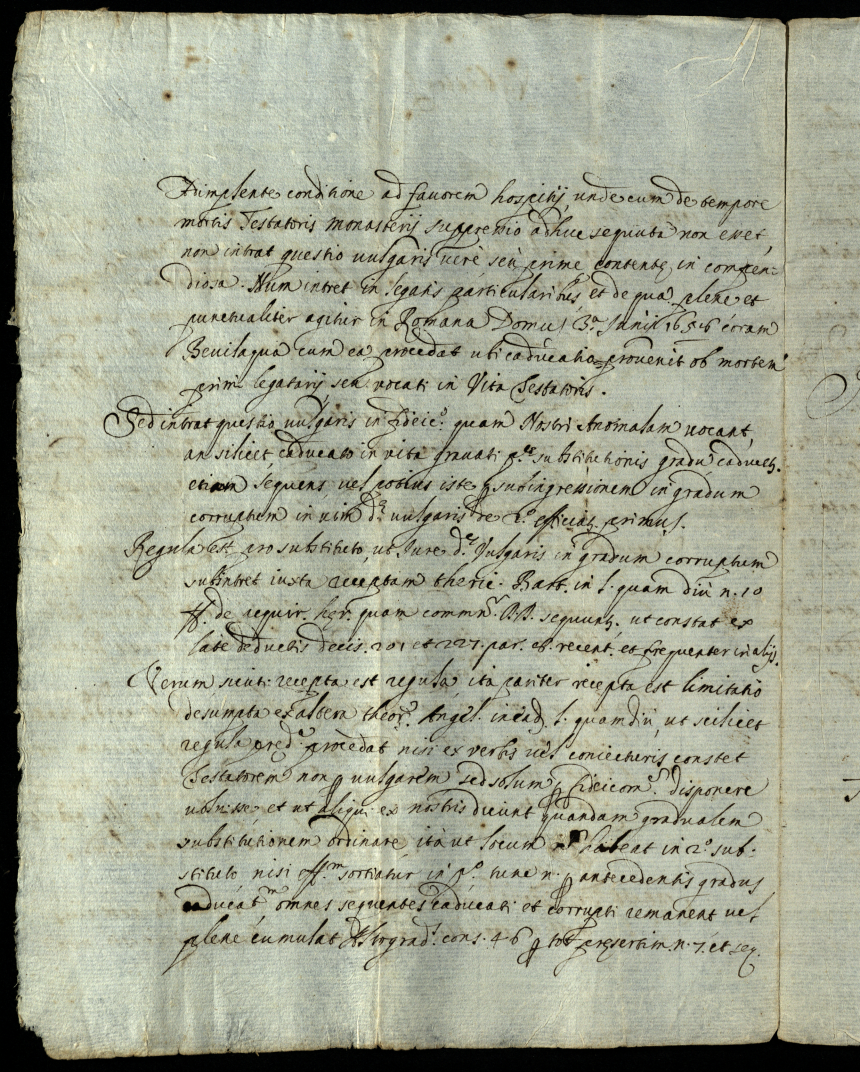 Adimplente conditione ad favorem hospitij unde cum de tempore
mortis Testatoris monasterij suppressio adhuc sequuta non esset,
non intrat questio vulgaris verè seu prime contente, in compen-
diosa. Num intret in legatis particularibus, et de qua plene et
punctualiter agitur in Romana Domus 3.a Junij 1656 coram
Bevilaqua cum ea procedat ubi caducatio provenit ob mortem
primi legatarij seu vocati in vita Testatoris.
Sed intrat questio vulgaris in fideic.o quam Nostri Anomalam vocant,
an scilicet caducato in vita gravati p.o substitutionis gradu caducet.
etiam sequens, vel potius iste p subingressionem in gradum
corruptum in vim d.e vulgaris de 2.o efficiat. primus.
Regula est pro substituto, ut Jure d.e Vulgaris in gradum corruptum
subintret iuxta receptam theric. Bart. in l. quam diu n. 10
ff. de acquir. her. quam commn.r DD. sequunt. ut constat ex
late deductis decis. 201 et 227. par. recent. et frequenter in alijs.
Verum sicuti recepta est regula, ita pariter recepta est limitatio
desumpta ex altera theor. Angel. in ead. l. quamdiu, ut scilicet
regula pred.a procedat nisi ex verbis vel coniecturis constet
Testatorem non vulgarem sed solum fideicom. disponere
voluisse, et ut aliqui ex nostris dicunt quandam gradualem
substitutionem ordinare, ità ut locum non habeat in 2.o sub-
stituto nisi eff.m sortiatur in p.o tunc n. p antecedentis gradus
caducat.m omnes sequentes caducati et corrupti remanent uti
plene cumulat cons. 46 p tot. presertim n. 7. et seq.